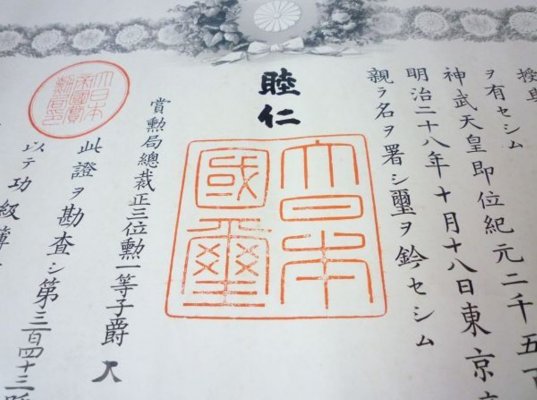 授與
ヲ有セシム
神武天皇即位紀元二千五
明治二十八年十月十八日東京
親ラ名ヲ署シ璽ヲ鈐セシム
睦仁
大日本
國璽
賞勲局總裁正三位勲一等子爵
大日本
帝國賞
勲局印
此證ヲ勘査シ第三百四十三
以テ功級簿